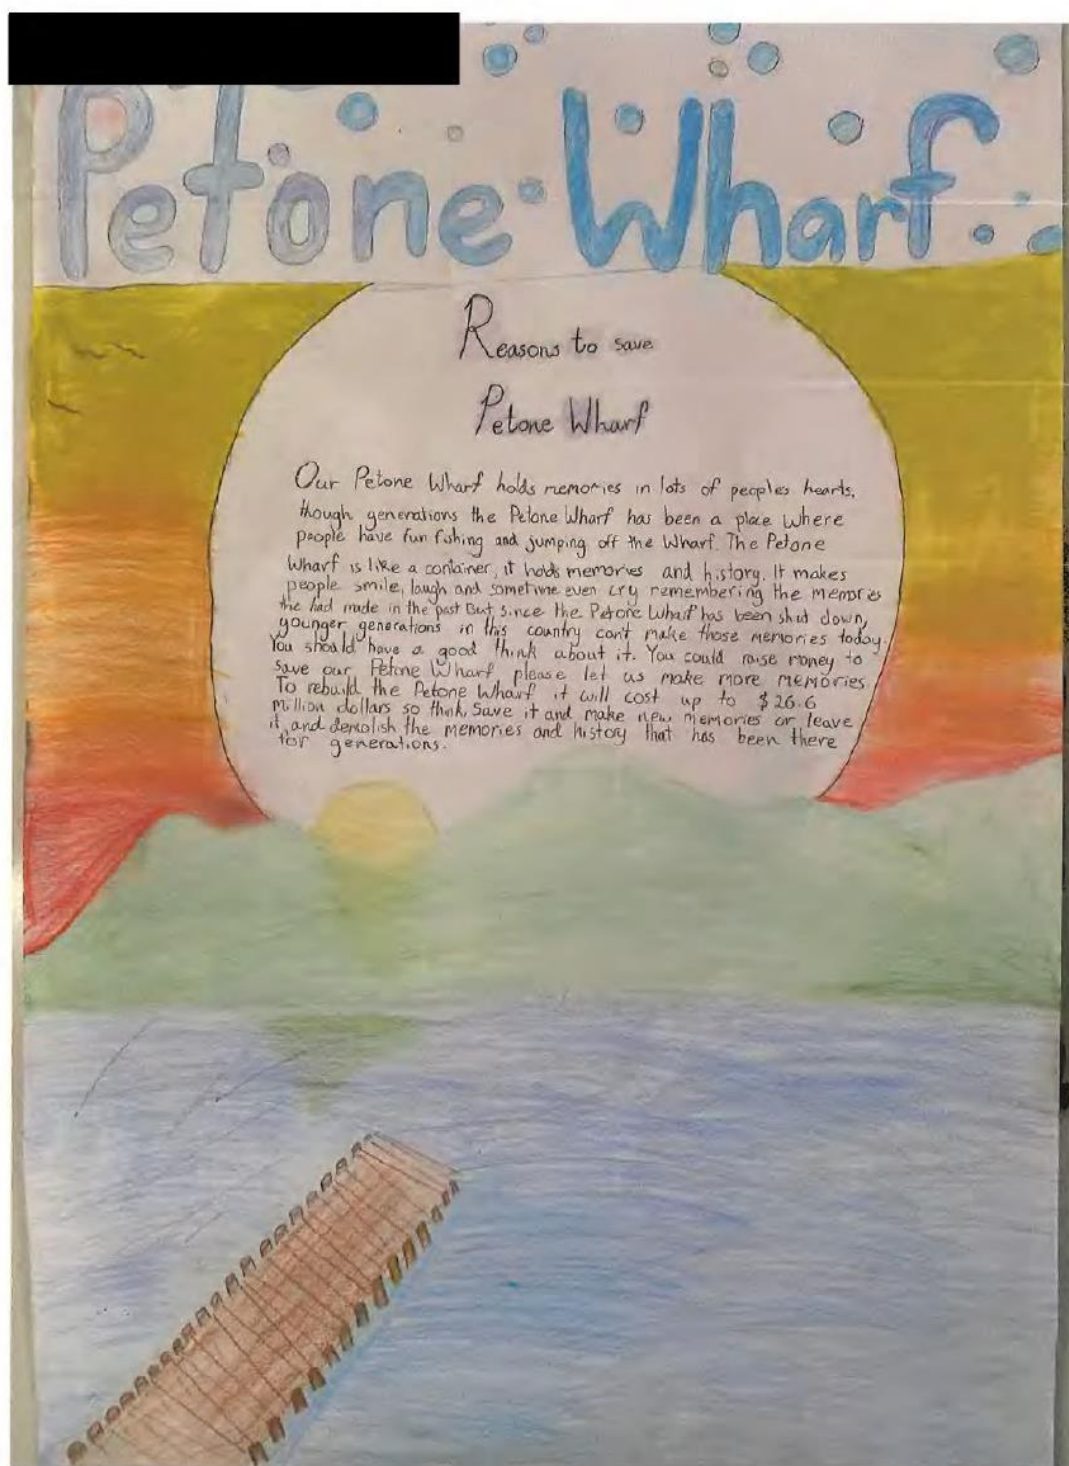 Petone Wharf
Reasons to save
Petone Wharf
Our Petone Wharf holds memories in lots of peoples hearts,
though generations the Petone Wharf has been a place where
people have fun fishing and jumping off the Wharf. The Petone
Wharf is like a container, it holds memories and history. It makes
people smile, laugh and sometime even cry remembering the memories
the had made in the past But since the Petone Wharf has been shut down,
younger generations in this country can't make those memories today.
You should have a good think about it. You could raise money to
save our Petone Wharf please let us make more memories
To rebuild the Petone Wharf it will cost up to $26.6
million dollars so think, Save it and make new memories or leave
it, and demolish the memories and history that has been there
for generations.